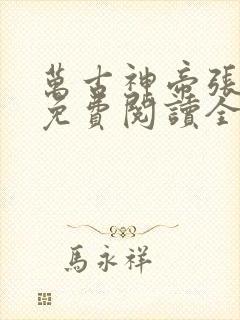 萬古神帝張
免費閱讀全
馬永祥